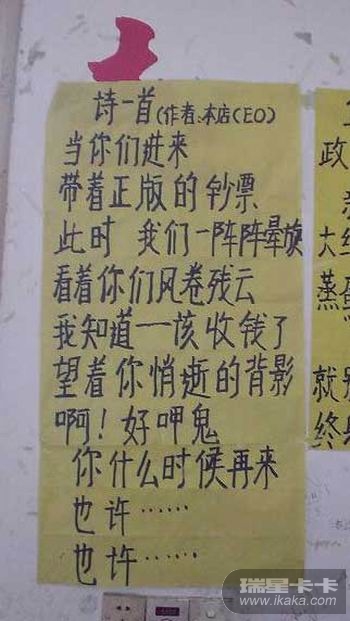 诗一首(作者:本店CEO)
当你们进来
带着正版的钞票
此时 我们一阵阵晕旋
看着你们风卷残云
我知道一该收钱了
望着你悄逝的背影
啊!好呷鬼
你什么时候再来
也许……
也许……
政
大
蒸蛋
就
终
瑞星卡卡
www.ikaka.com